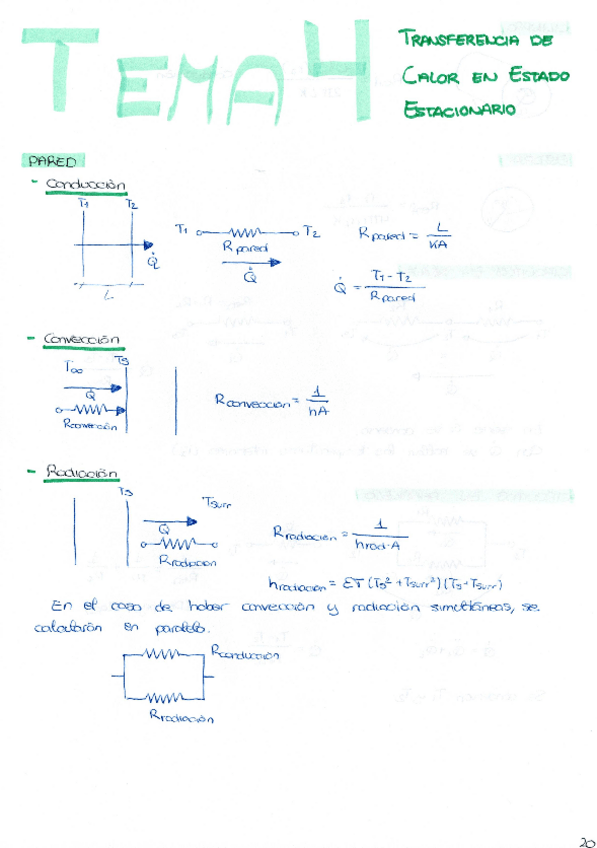 TEMA 4
TRANSFERENCIA DE
CALOR EN ESTADO
ESTACIONARIO
PARED
- Conducción
T1 T2
Q̇
L
T1 T2
Rpared
Q̇
Rpared = L / KA
Q̇ = T1 - T2 / Rpared
- Convección
T∞ TS
Q̇
Rconvección
Rconvección = 1 / hA
- Radiación
TS Tsurr
Q̇
Rradiación
Rradiación = 1 / hrad·A
hradiación = ET (TS² + Tsurr²) (TS + Tsurr)
En el caso de haber convección y radiación simultáneas, se
calcularán en paralelo.
Rconducción
Rradiación
20